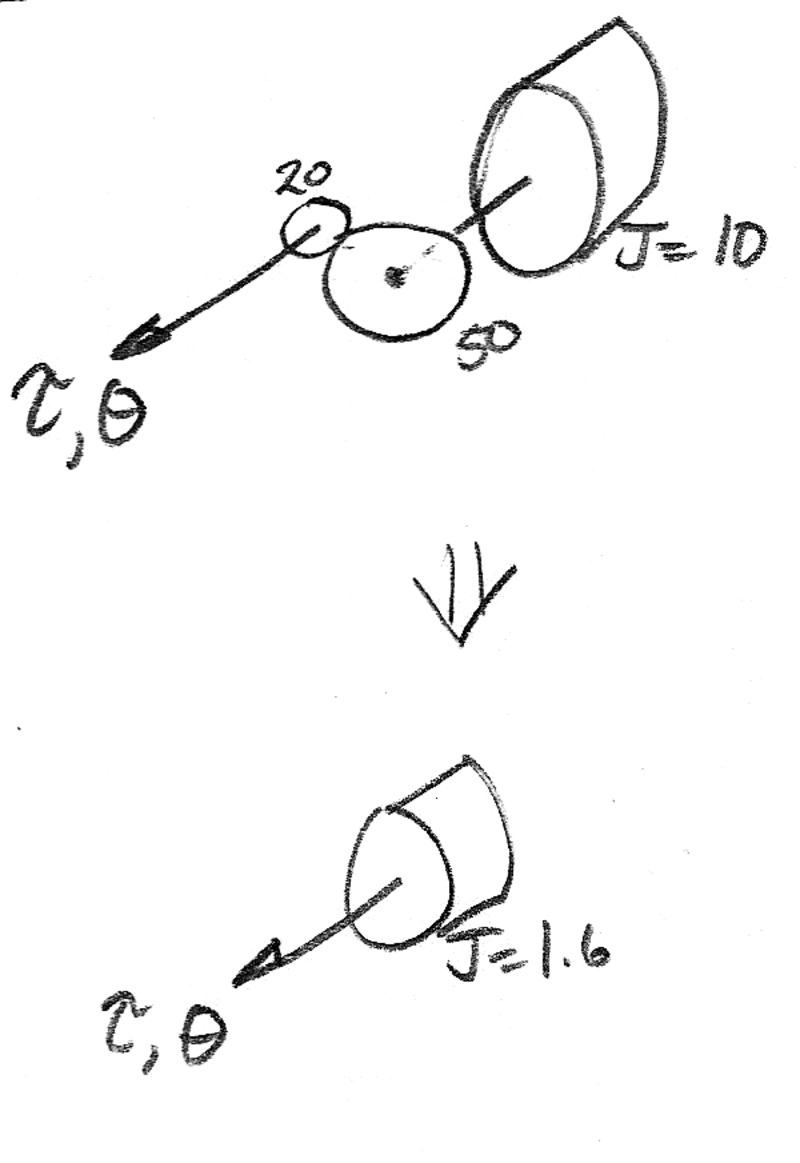 20
J=10
50
τ,θ
J=1.6
τ,θ